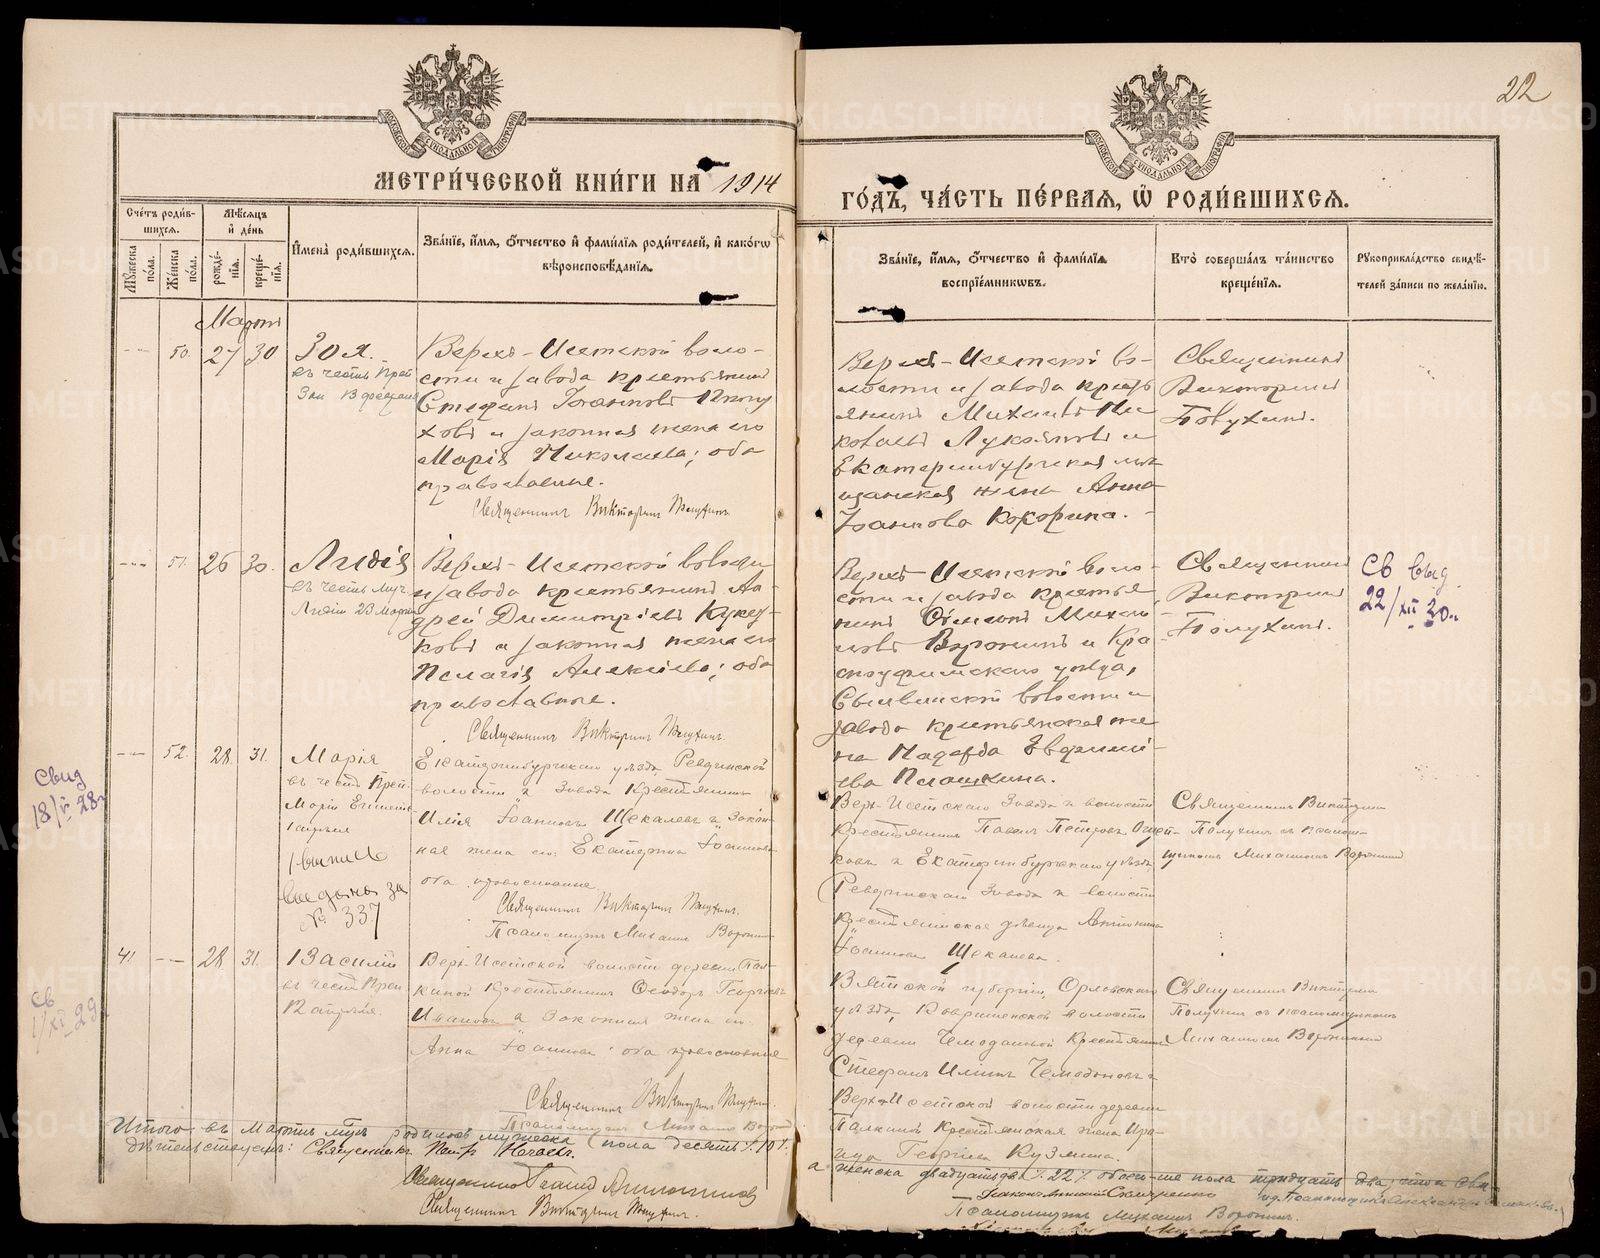 22
МЕТРИ́ЧЕСКОЙ КНИ́ГИ НА 1914
ГО́ДЪ, ЧА́СТЬ ПЕ́РВАѦ, Ѡ РОДИ́ВШИХСѦ.
Сче́тъ роди́в-
шихсѧ.
Мѣ́сѧцъ
и҆ де́нь
Мꙋ́жеска по́ла.
Же́нска по́ла.
рожде́-
нїѧ.
креще́-
нїѧ.
И҆мена̀ роди́вшихсѧ.
Зва́нїе, и҆́мѧ, ѻ҆́тчество и҆ фами́лїѧ роди́телей, и҆ како́гѡ
вѣроисповѣ́данїѧ.
Зва́нїе, и҆́мѧ, ѻ҆́тчество и҆ фами́лїѧ
воспрїе́мникѡвъ.
Кто̀ соверша́лъ та́инство
креще́нїѧ.
Рꙋкоприкла́дство свидѣ́-
телей за́писи по жела́нїю.
Мартъ
50. 27 30
Зоя.
въ честь Преп
Зои 13 февраля
Верхъ-Исетской воло-
сти и завода крестьянинъ
Стефанъ Іоанновъ
и законная жена его
Марія Николаева; оба
православные.
Священникъ Викторинъ Полухинъ
Верхъ-Исетской во-
лости и завода кресть
янинъ Михаилъ Ни
колаевъ Лукояновъ и
Екатеринбургская мѣ
щанская жена Анна
Іоаннова Кокорина.
Священникъ
Викторинъ
Полухинъ.
51. 26 30.
Лидія
въ честь муч.
Лидіи 23 марта
Верхъ-Исетской волости
и завода крестьянинъ Ан
дрей Димитріевъ
и законная жена его
Пелагія Алексіева; оба
православные.
Священникъ Викторинъ Полухинъ.
Верхъ-Исетской воло-
сти и завода крестья
нинъ Симеонъ Михаи
ловъ Воронинъ и Кра
сноуфимскаго уѣзда,
Сылвинской волости и
завода крестьянская же
на Надежда Евфимі-
ева
Священникъ
Викторинъ
Полухинъ.
Св выд
22/XII 30.
Свид
18/IV 28.
52. 28. 31.
Марія
въ честь Преп.
Маріи Египет.
1 апрѣля
выпись
выдана за
№ 337
Екатеринбургскаго уѣзда, Ревдинской
волости и завода Крестьянинъ
Илія Іоанновъ Щекалевъ и закон-
ная жена его Екатерина Іоаннова
оба православные.
Священникъ Викторинъ Полухинъ.
Псаломщикъ Михаилъ Воронинъ
Верх-Исетскаго завода и волости
Крестьянинъ Павелъ Петровъ
и Екатеринбургскаго уѣзда,
Ревдинскаго завода и волости
Крестьянская дѣвица Антонина
Іоаннова Щекалева.
Священникъ Викторинъ
Полухинъ съ псалом-
щикомъ Михаиломъ Воронинымъ
Св
1/XI 29.
41. 28 31.
Василій
въ честь Преп.
12 апрѣля.
Верх-Исетской волости деревни Пал-
киной Крестьянинъ Ѳеодоръ Георгіевъ
Ивановъ и законная жена его
Анна Іоаннова оба православные
Священникъ Викторинъ Полухинъ.
Псаломщикъ Михаилъ Воронинъ
Вятской губерніи, Орловскаго
уѣзда, волости
деревни Чемодановой Крестьянинъ
Стефанъ Иліинъ Чемодановъ и
Верх-Исетской волости деревни
Палкиной Крестьянская жена Ира-
ида Георгіева Кузмина.
Священникъ Викторинъ
Полухинъ съ псаломщикомъ
Михаиломъ Воронинымъ
Итого: въ Мартѣ м-цѣ родилось мужеска пола десять /10/.
а женска двадцать два /22/ обоего пола тридцать два; что сви-
дѣтельствуемъ: Священникъ Петр
Священникъ Іоаннъ
Священникъ Викторинъ Полухинъ.
Псаломщикъ Михаилъ Воронинъ.
METRIKI.GASO-URAL.RU